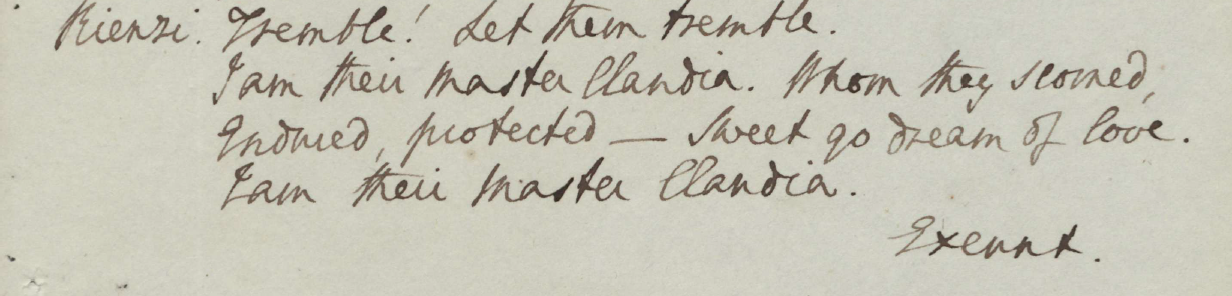 Rienzi. Tremble! Let them tremble.
I am their master Claudia. Whom they scorned,
Endured, protected — Sweet go dream of love.
I am their master Claudia.
Exeunt.